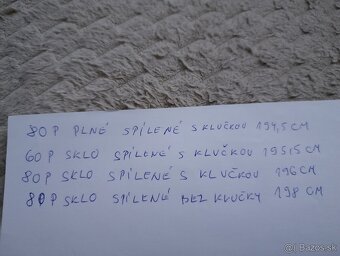 80P PLNÉ SPÍLENÉ S KLUČKOU 194,5 CM
60P SKLO SPÍLENÉ S KLUČKOU 195,5 CM
80P SKLO SPÍLENÉ S KLUČKOU 196 CM
80P SKLO SPÍLENÉ BEZ KLUČKY 198 CM
© Bazos.sk